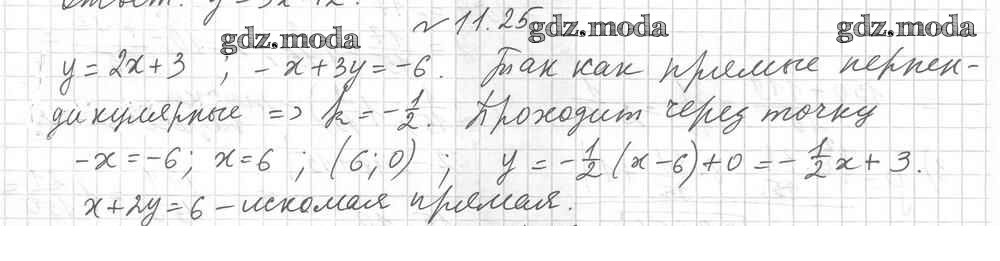 № 11.25
y = 2x + 3 ; - x + 3y = -6. Так как прямые перпен-
дикулярные => k = -1/2. Проходит через точку
-x = -6; x = 6 ; (6; 0) ; y = -1/2 (x - 6) + 0 = -1/2 x + 3.
x + 2y = 6 - искомая прямая.
gdz.moda
gdz.moda
gdz.moda